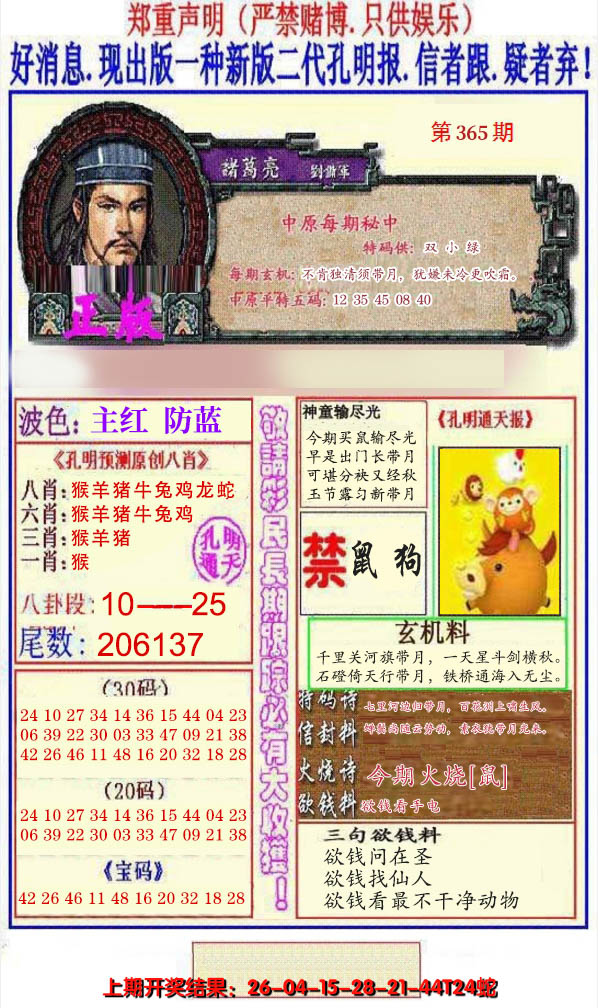 郑重声明（严禁赌博.只供娱乐）
好消息.现出版一种新版二代孔明报.信者跟.疑者弃!
第365期
諸葛亮 劉備軍
中原每期秘中
特码供：双 小 绿
每期玄机：不肯独清须带月，犹嫌未冷更吹霜。
中原平特五码：12 35 45 08 40
正版
波色：主红 防蓝
《孔明预测原创八肖》
八肖：猴羊猪牛兔鸡龙蛇
六肖：猴羊猪牛兔鸡
三肖：猴羊猪
一肖：猴
孔明
通天
八卦段：10----25
尾数：206137
（30码）
24 10 27 34 14 36 15 44 04 23
06 39 22 30 03 33 47 09 21 38
42 26 46 11 48 16 20 32 18 28
（20码）
24 10 27 34 14 36 15 44 04 23
06 39 22 30 03 33 47 09 21 38
《宝码》
42 26 46 11 48 16 20 32 18 28
敬請彩民長期跟踪必有大收獲！
神童输尽光
今期买鼠输尽光
早是出门长带月
可堪分袂又经秋
玉节露匀新带月
《孔明通天报》
禁 鼠 狗
玄机料
千里关河旗带月，一天星斗剑横秋。
石磴倚天行带月，铁桥通海入无尘。
特码诗 七里河边归带月，百花洲上啸生风。
信封料 蝉鬓尚随云势动，素衣犹带月光来。
火烧诗 今期火烧[鼠]
欲钱料 欲钱看手电
三句欲钱料
欲钱问在圣
欲钱找仙人
欲钱看最不干净动物
上期开奖结果：26-04-15-28-21-44T24蛇